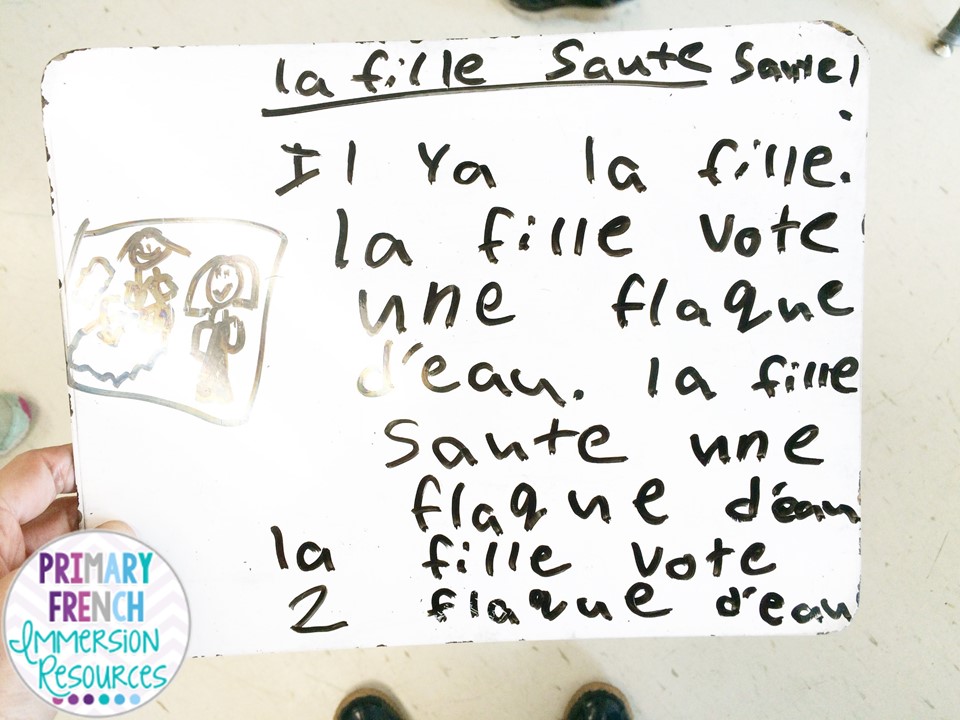 la fille Saute Samuel
Il Ya la fille.
la fille vote
une flaque
d'eau. la fille
Saute une
flaque d'éau
la fille vote
2 flaque d'eau
PRIMARY
FRENCH
IMMERSION
RESOURCES